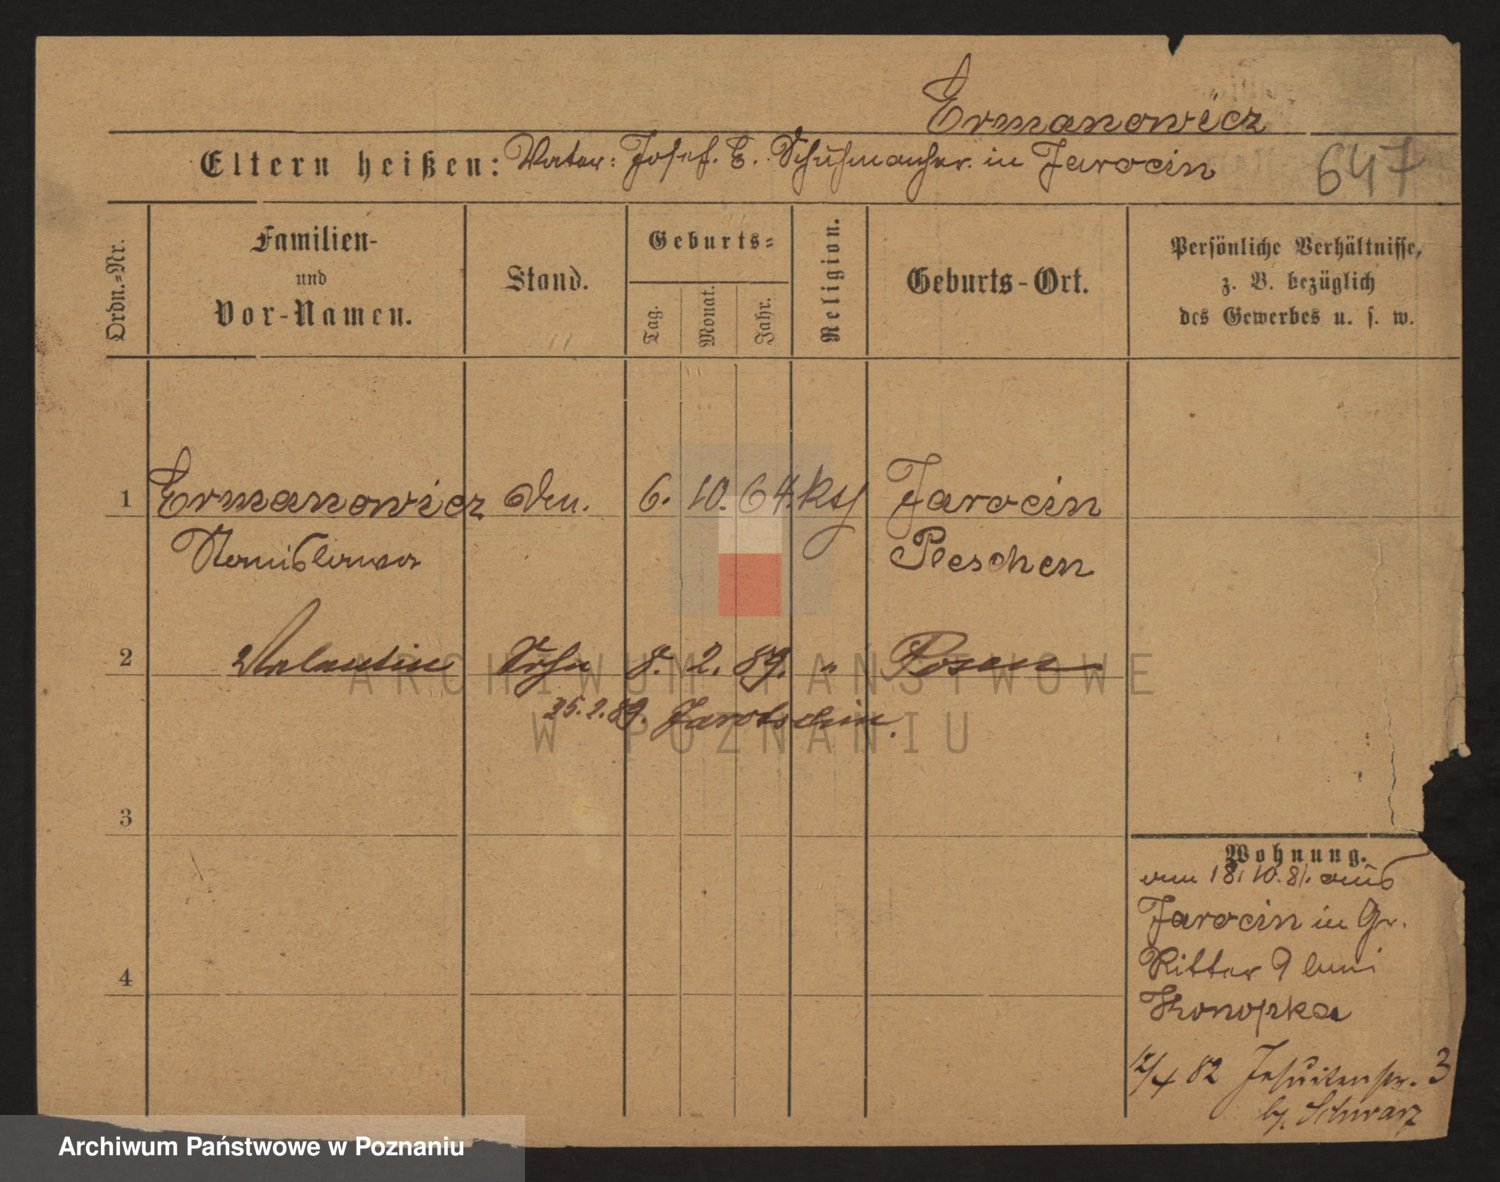 Ermanowicz
Eltern heißen: Vater: Josef. E. Schuhmacher. in Jarocin
647
Ordn.-Nr.
Familien-
und
Vor-Namen.
Stand.
Geburts-
Tag.
Monat.
Jahr.
Religion.
Geburts-Ort.
Persönliche Verhältnisse,
z. B. bezüglich
des Gewerbes u. s. w.
1 Ermanowicz 6. 10. 64. Jarocin
Stanislawa Pleschen
2 Valentin Sohn 8. 2. 89. " Posen
25.2.89. Jarotschin.
3
Wohnung.
18.10.81. aus
Jarocin in Gr.
Ritter 9 bei
Konopka
4
12/4 82 Jesuitenstr. 3
bj. Schwarz
ARCHIWUM PAŃSTWOWE
W POZNANIU
Archiwum Państwowe w Poznaniu